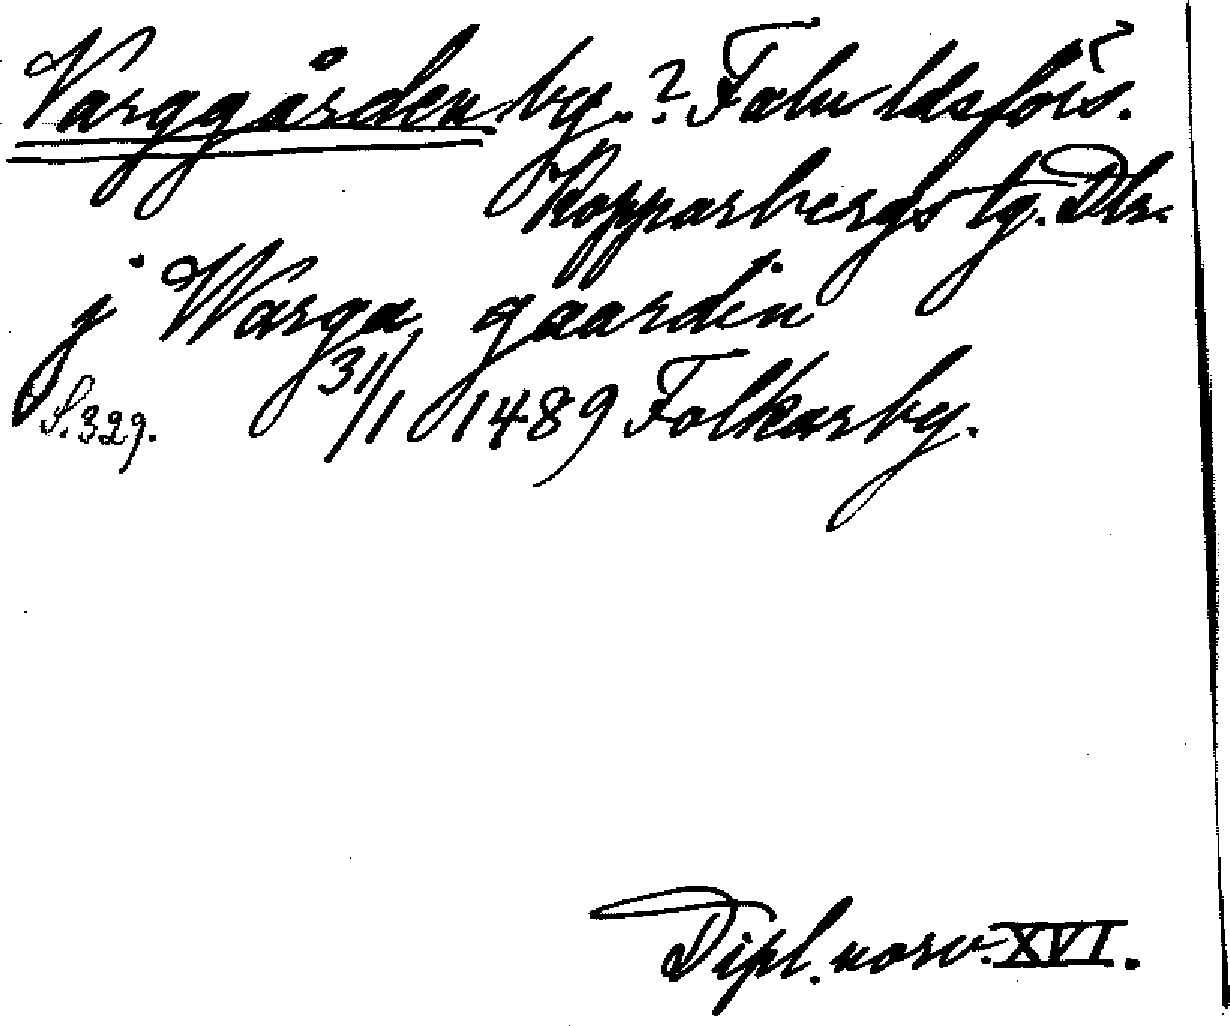 Varggården by.? Falu ldsförs.
Kopparbergs tg. Dlr.
j Warga gaardin
S. 329. 31/1 1489 Folkarby.
Dipl. norv. XVI.